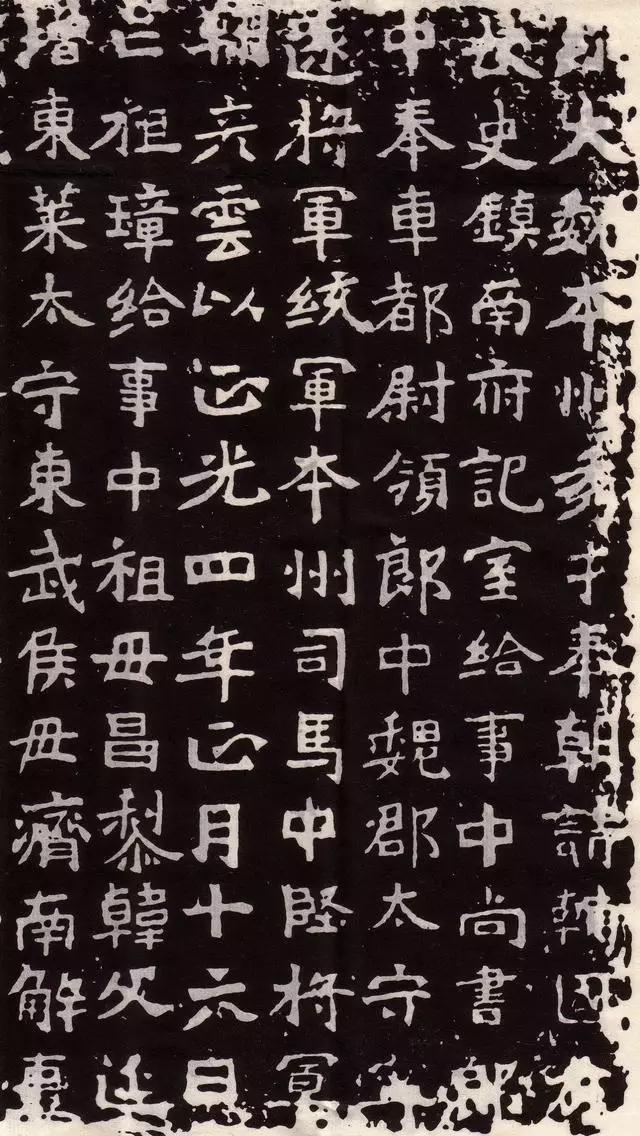 大魏本州秀才奉朝請輔國府
長史鎮南府記室給事中尚書郎
中奉車都尉領郎中魏郡太守
遠將軍統軍本州司馬中堅將軍
彥雲以正光四年正月十六日
亡祖璋給事中祖母昌黎韓父延
增東萊太守東武侯母濟南解